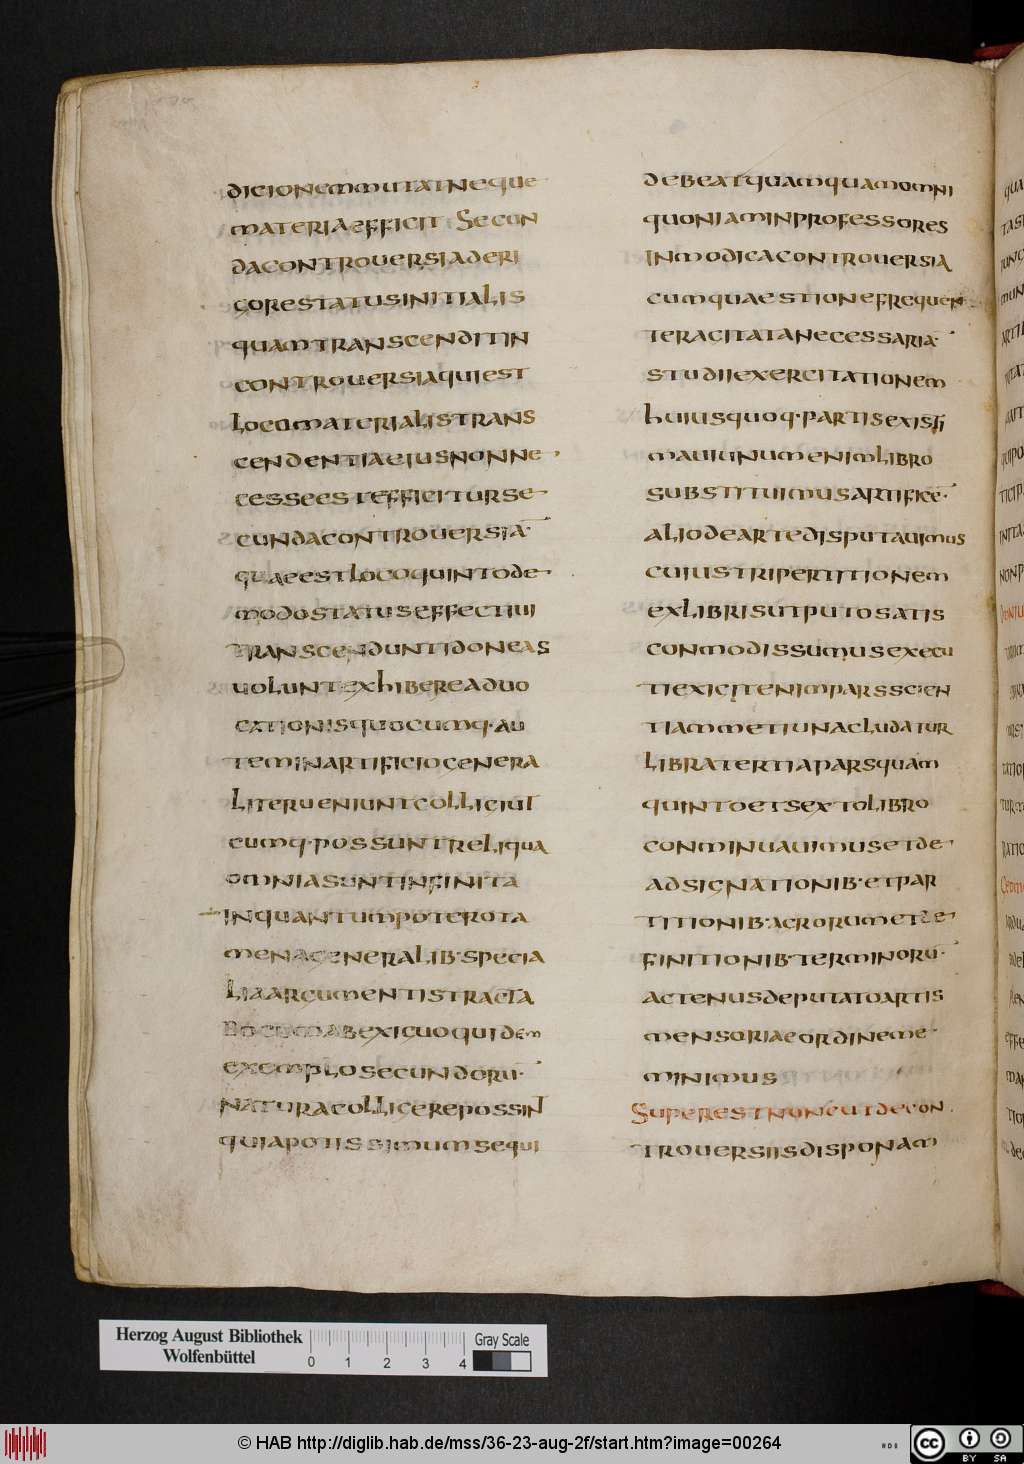 dicionemmutatneque
materiaefficit Secun
dacontrouersiaderi
gorestatusinitialis
quamtranscenditin
controuersiaquiest
locumaterialistrans
cendentiaeiusnonne
cesseestefficiturse
cundacontrouersia·
quaeestlocoquintode
modostatuseffectiui
transcenduntidoneas
uoluntexhibereaduo
cationisquocumq·au
teminartificiogenera
literueniuntcolligiut
cumq·possuntreliqua
omniasuntinfinita
inquantumpoterota
menageneralib·specia
liaargumentistracta
bocumabexiguoquidem
exemplosecundoru·
naturacolligerepossint
quiapotissimumsequi
debeatquamquamomni
quoniaminprofessores
inmodicacontrouersia
cumquaestionefrequen
teragitatanecessaria·
studiiexercitationem
huiusquoq·partisexisti
mauiunumenimlibro
substituimusartifice·
aliodeartedisputauimus
cuiustripertitionem
exlibrisutputosatis
conmodissumusexecu
tiexigitenimparsscien
tiammetiunacludatur
libratertiaparsquam
quintoetsextolibro
conminuauimusetde
adsignationib·etpar
titionib·agrorumetde
finitionib·terminoru·
actenusdeputatoartis
mensoriaeordineme
minimus
Superestnuncutdecon
trouersiisdisponam
Herzog August Bibliothek
Wolfenbüttel
0 1 2 3 4
Gray Scale
© HAB http://diglib.hab.de/mss/36-23-aug-2f/start.htm?image=00264
cc BY SA